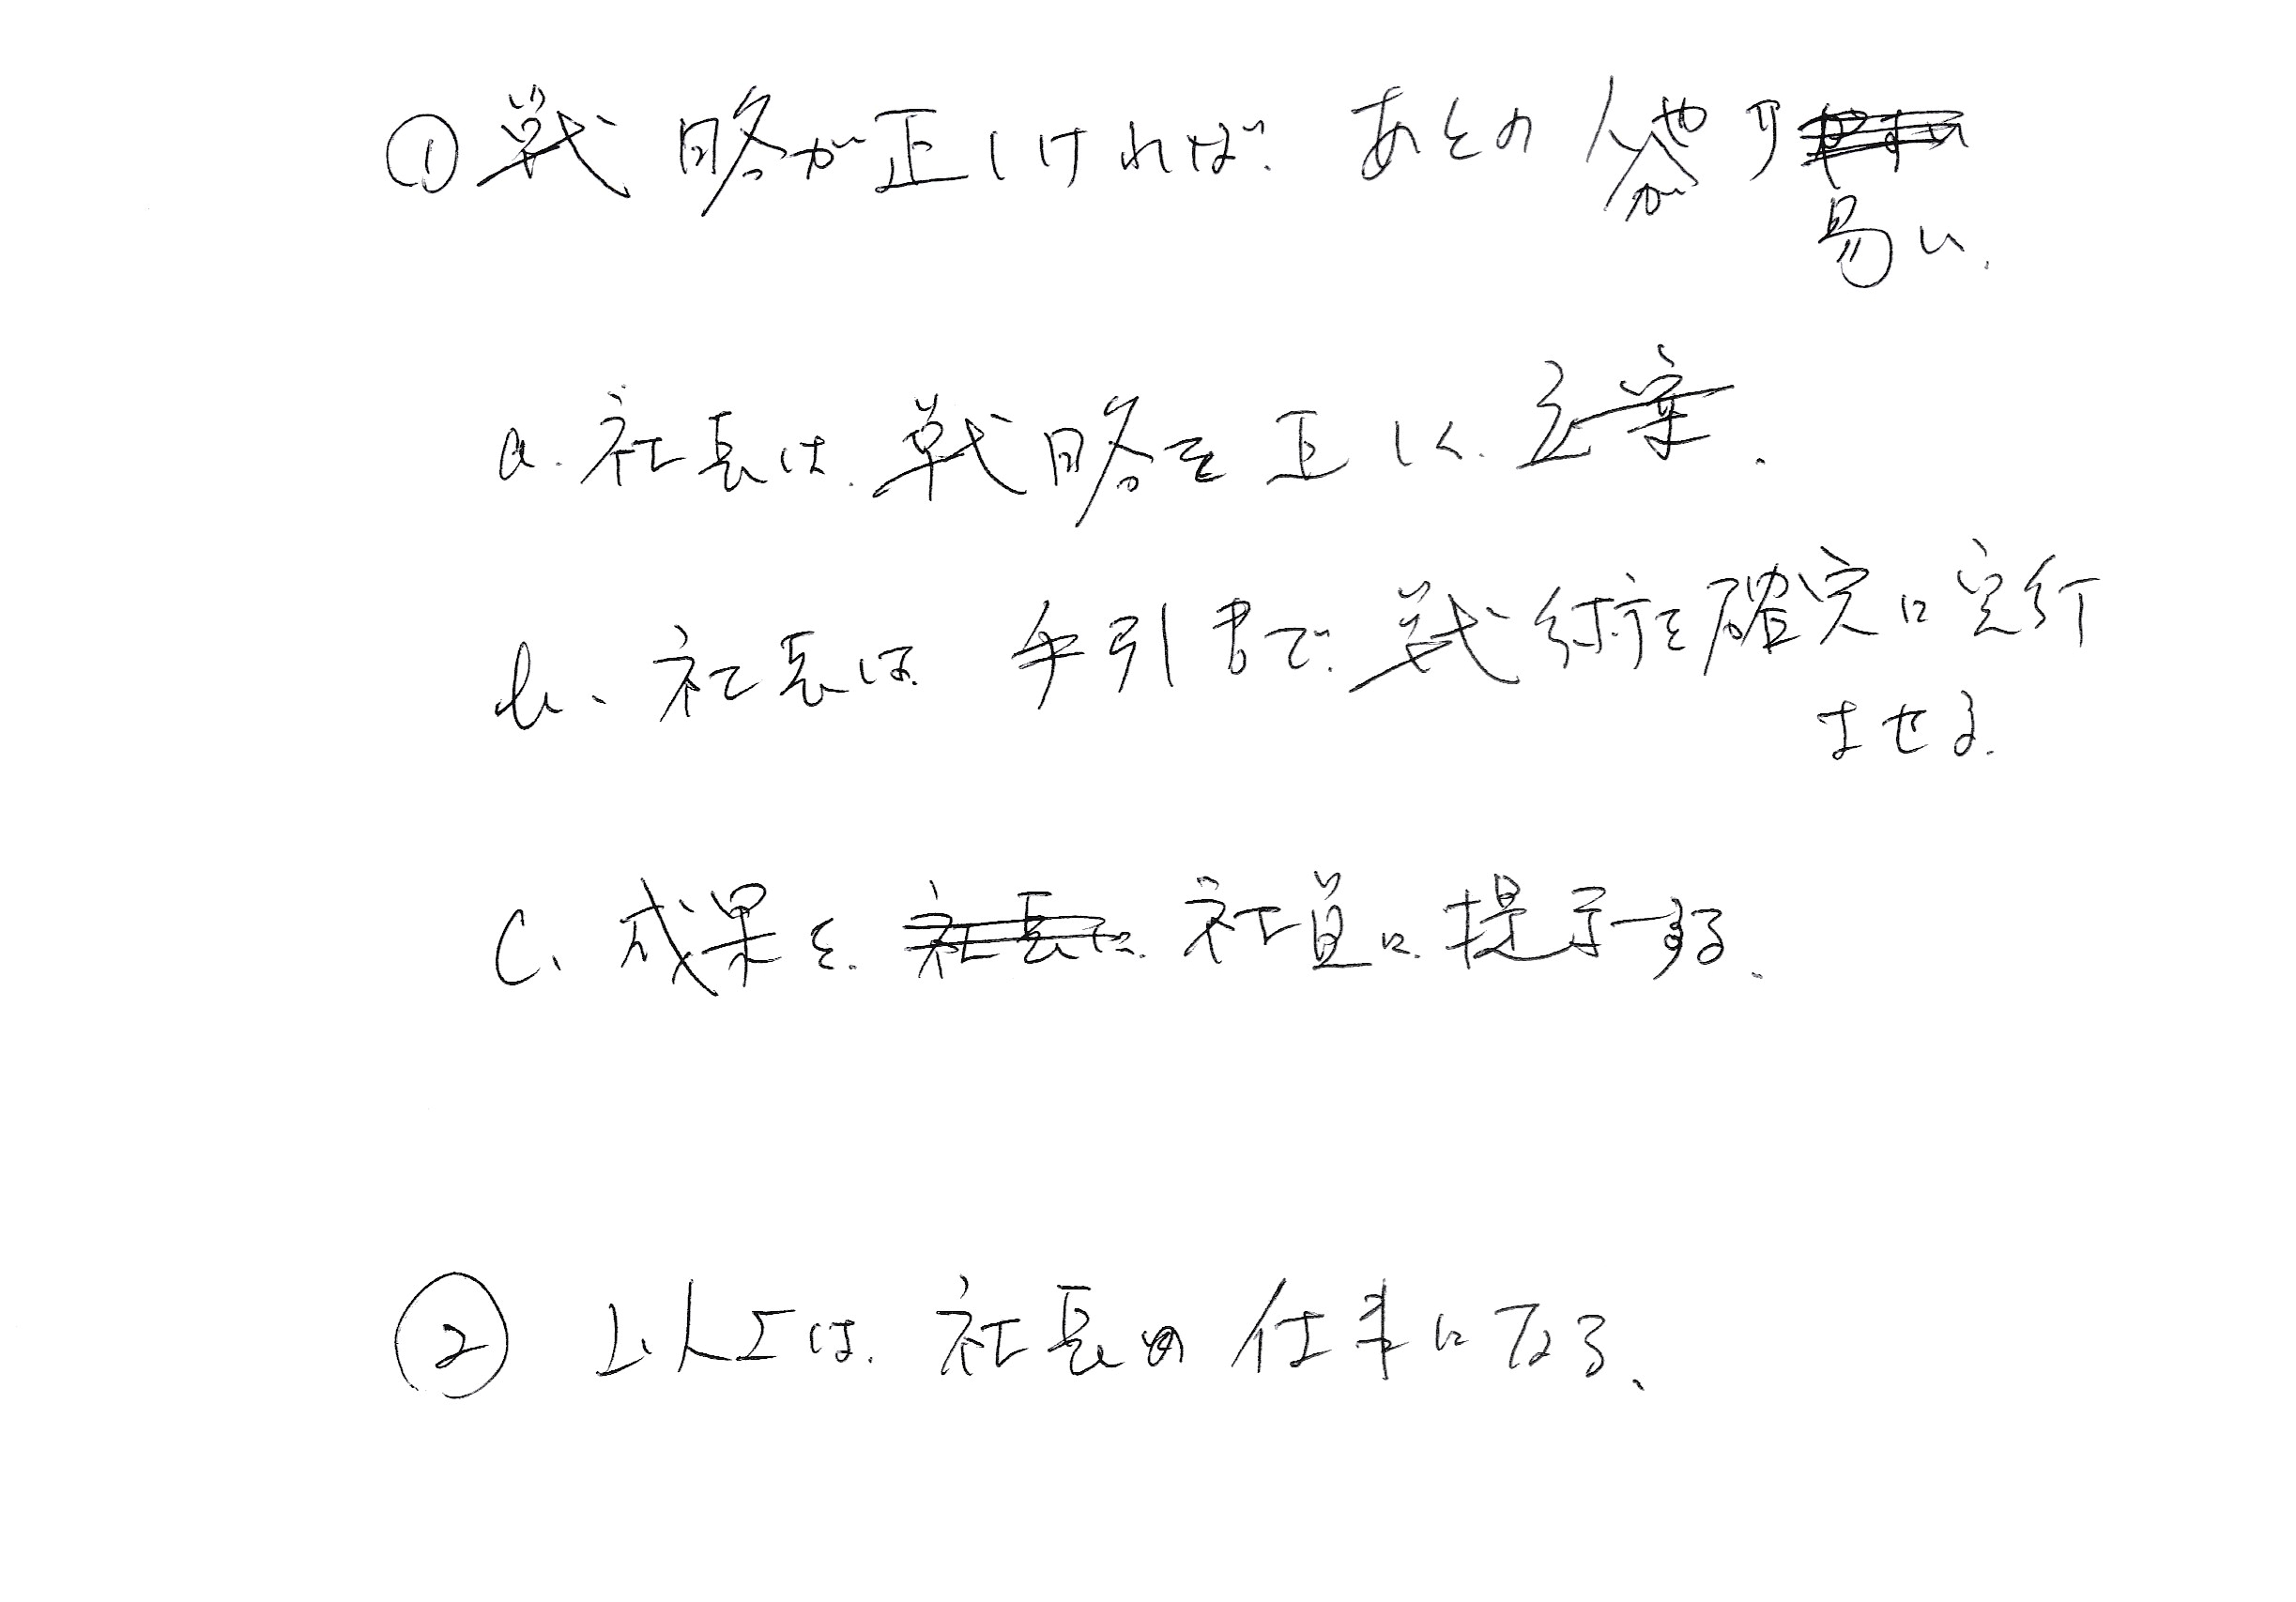 ①戦略が正しければ、あとの人がやり
易い.
a. 社長は、戦略を正しく、立案.
b、社長は、手引書で、戦術を確実に実行
させる.
c、成果を、社員に、提示する、
② 以上は、社長の仕事になる、